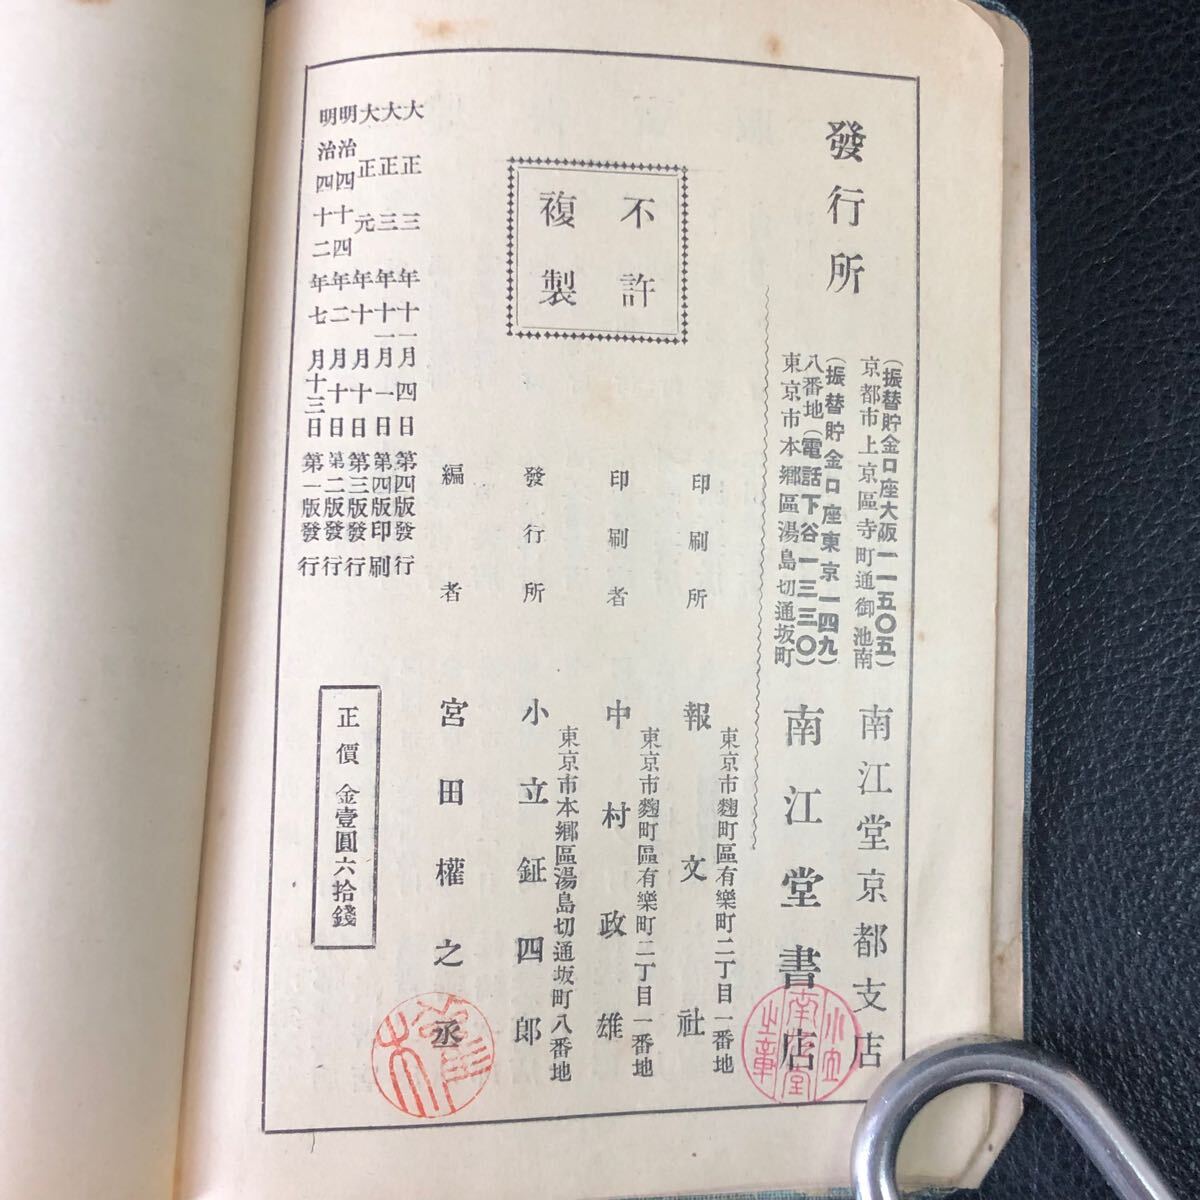 明治四十二年七月十三日第一版發行
明治四十四年二月十日第二版發行
大正元年十月十日第三版發行
大正三年十一月一日第四版印刷
大正三年十一月四日第四版發行
正價 金壹圓六拾錢
不許
複製
編者 宮田權之丞
發行所 小立鉦四郎
東京市本鄕區湯島切通坂町八番地
印刷者 中村政雄
東京市麴町區有樂町二丁目一番地
印刷所 報文社
東京市麴町區有樂町二丁目一番地
發行所
東京市本鄕區湯島切通坂町
八番地(電話下谷一三三〇)
(振替貯金口座東京一四九)
南江堂書店
京都市上京區寺町通御池南
(振替貯金口座大阪一一五〇五)
南江堂京都支店
小立
南江堂
之章